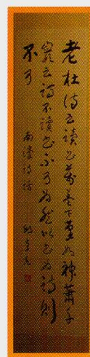 老杜诗云读书万卷下笔如神萧千
岩云诗不读书不可为然以书为诗则
不可
南濠诗话